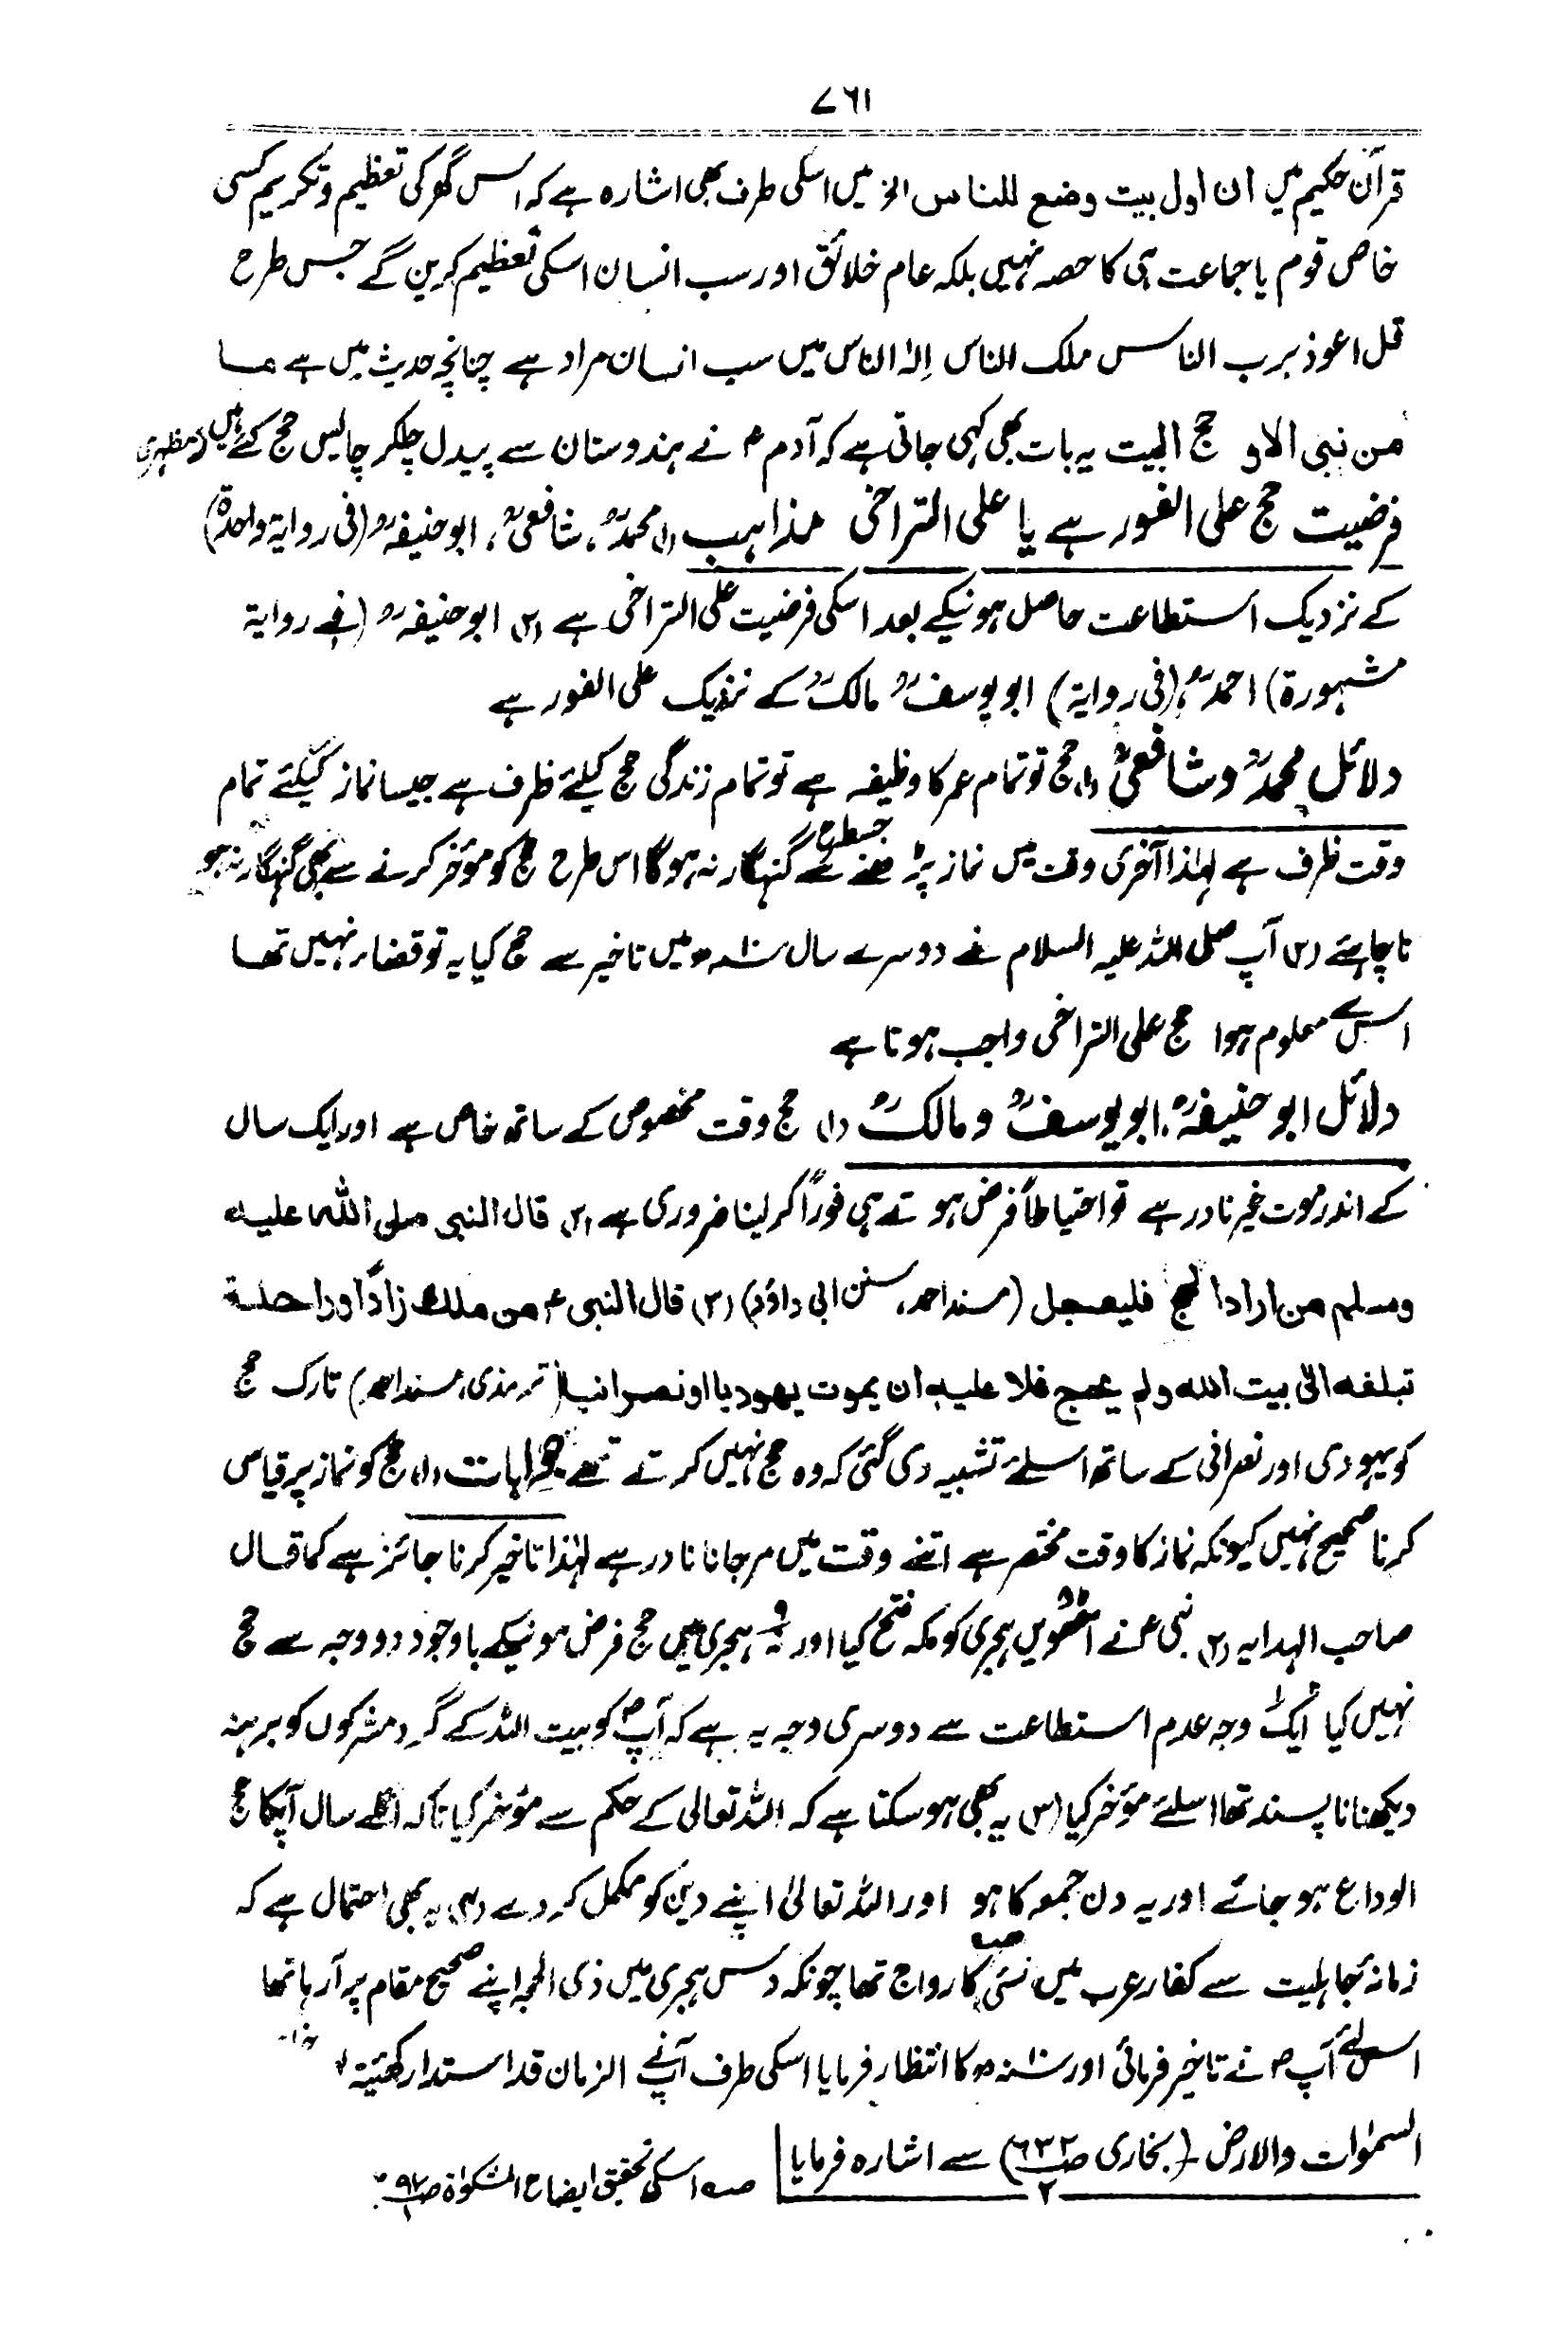 ۷۶۱
قرآن حکیم میں ان اول بیت وضع للناس الخ میں اسکی طرف بھی اشارہ ہے کہ اس گھر کی تعظیم وتکریم کسی
خاص قوم یا جماعت ہی کا حصہ نہیں بلکہ عام خلائق اور سب انسان اسکی تعظیم کرین گے جس طرح
قل اعوذ برب الناس ملک الناس اِلٰہ الناس میں سب انسان مراد ہے چنانچہ حدیث میں ہے مـا
من نبی الا و حج البیت یہ بات بھی کہی جاتی ہے کہ آدم ؑ نے ہندوستان سے پیدل چلکر چالیس حج کئے ہیں (مظہری
فرضیت حج علی الفور ہے یا علی التراخی مذاہب (۱) محمدؒ، شافعیؒ، ابو حنیفہؒ (فی روایۃ واحدۃ)
کے نزدیک استطاعت حاصل ہونیکے بعد اسکی فرضیت علی التراخی ہے (۲) ابو حنیفہؒ (فی روایۃ
مشہورۃ) احمدؒ (فی روایۃ) ابو یوسفؒ مالکؒ کے نزدیک علی الفور ہے
دلائل محمدؒ وشافعیؒ (۱) حج تو تمام عمر کا وظیفہ ہے تو تمام زندگی حج کیلئے ظرف ہے جیسا نماز کیلئے تمام
وقت ظرف ہے لہٰذا آخری وقت میں نماز پڑھنے سے جسطرح گنہگار نہ ہوگا اس طرح حج کو مؤخر کرنے سے بھی گنہگار نہ ہو
نا چاہئے (۲) آپ صلی اللہ علیہ السلام نے دوسرے سال ۱۰ھ میں تاخیر سے حج کیا یہ تو قضاء نہیں تھا
اس سے معلوم ہوا حج علی التراخی واجب ہوتا ہے
دلائل ابو حنیفہؒ، ابو یوسفؒ و مالکؒ (۱) حج وقت مخصوص کے ساتھ خاص ہے اور ایک سال
کے اندر موت غیر نادر ہے تو احتیاطاً فرض ہو تے ہی فوراً کر لینا ضروری ہے (۲) قال النبی صلی اللہ علیہ
وسلم من اراد الحج فلیعجل (مسند احمد، سنن ابی داؤد) (۳) قال النبی ؐ من ملک زاداً وراحلۃ
تبلغہ الیٰ بیت اللہ ولم یحج فلا علیہ ان یموت یھودیا او نصرانیا (ترمذی، مسند احمد) تارک حج
کو یہودی اور نصرانی کے ساتھ اسلئے تشبیہ دی گئی کہ وہ حج نہیں کرتے تھے جوابات (۱) حج کو نماز پر قیاس
کرنا صحیح نہیں کیونکہ نماز کا وقت مختصر ہے اتنے وقت میں مرجانا نادر ہے لہٰذا تاخیر کرنا جائز ہے کما قال
صاحب الہدایہ (۲) نبی ؐ نے آٹھویں ہجری کو مکہ فتح کیا اور ۹ ہجری میں حج فرض ہونیکے باوجود دو وجہ سے حج
نہیں کیا ایک وجہ عدم استطاعت سے دوسری وجہ یہ ہے کہ آپؐ کو بیت اللہ کے گرد مشرکوں کو برہنہ
دیکھنا ناپسند تھا اسلئے مؤخر کیا (۳) یہ بھی ہوسکتا ہے کہ اللہ تعالی کے حکم سے مؤخر کیا تاکہ اگلے سال آپکا حج
الوداع ہو جائے اور یہ دن جمعہ کا ہو اور اللہ تعالیٰ اپنے دین کو مکمل کردے (۴) یہ بھی احتمال ہے کہ
زمانۂ جاہلیت سے کفار عرب میں نسئی کا رواج تھا چونکہ دس ہجری میں ذی الحجہ اپنے صحیح مقام پر آرہا تھا
اسلئے آپؐ نے تاخیر فرمائی اور ۱۰ھ کا انتظار فرمایا اسکی طرف آپنے الزمان قد استدار کھئیتہ
السمٰوات والارض (بخاری صـ ۶۳۲ ۲) سے اشارہ فرمایا
صہ اسکی تحقیق ایضاح المشکوٰۃ صـ ۹۷ ۱